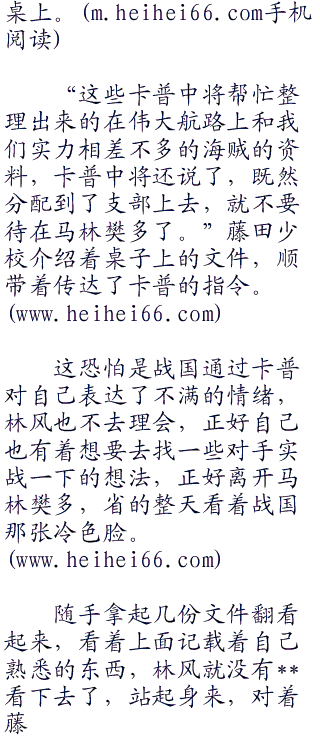 桌上。(m.heihei66.com手机
阅读)
“这些卡普中将帮忙整
理出来的在伟大航路上和我
们实力相差不多的海贼的资
料，卡普中将还说了，既然
分配到了支部上去，就不要
待在马林樊多了。”藤田少
校介绍着桌子上的文件，顺
带着传达了卡普的指令。
(www.heihei66.com)
这恐怕是战国通过卡普
对自己表达了不满的情绪，
林风也不去理会，正好自己
也有着想要去找一些对手实
战一下的想法，正好离开马
林樊多，省的整天看着战国
那张冷色脸。
(www.heihei66.com)
随手拿起几份文件翻看
起来，看着上面记载着自己
熟悉的东西，林风就没有**
看下去了，站起身来，对着
藤